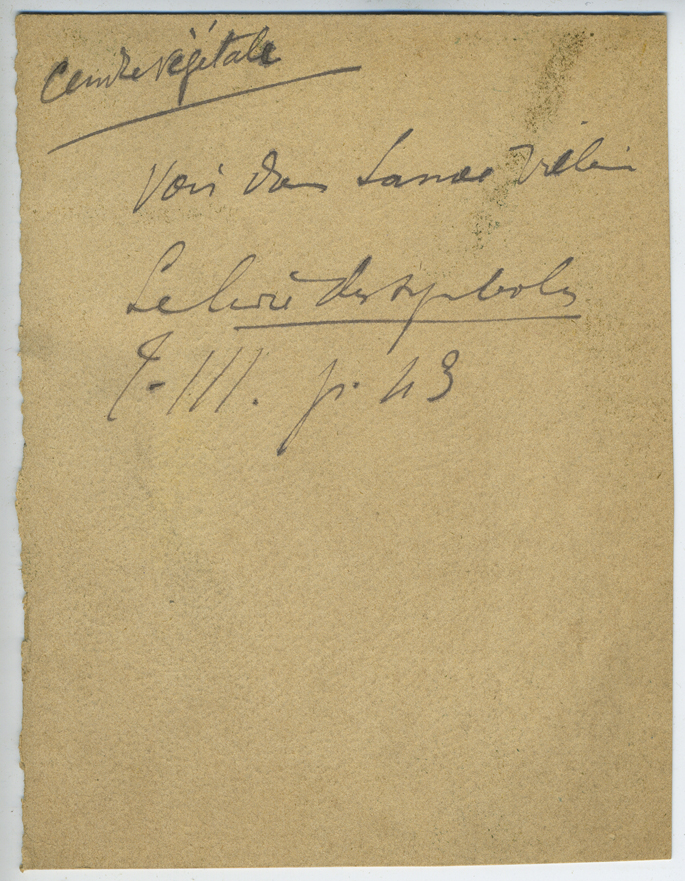 Cendre végétale
Voir dans Lanoe Villène
Le livre des symboles
T. III. p. 43